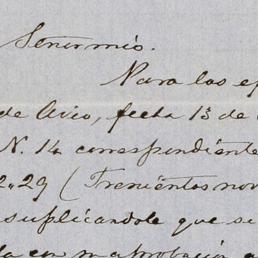 Señor mío.
Para los ef
de Avio, fecha 13 de
N. 14 correspondiente
2.29 (Trecientos nov
suplicándole que se
con su aprobación